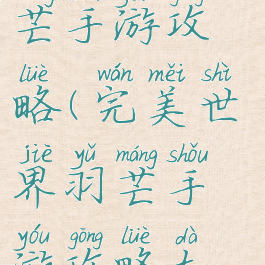 芒手游攻
lüè wán měi shì
略(完美世
jiè yǔ máng shǒu
界羽芒手
yóu gōng lüè dà
游攻略大